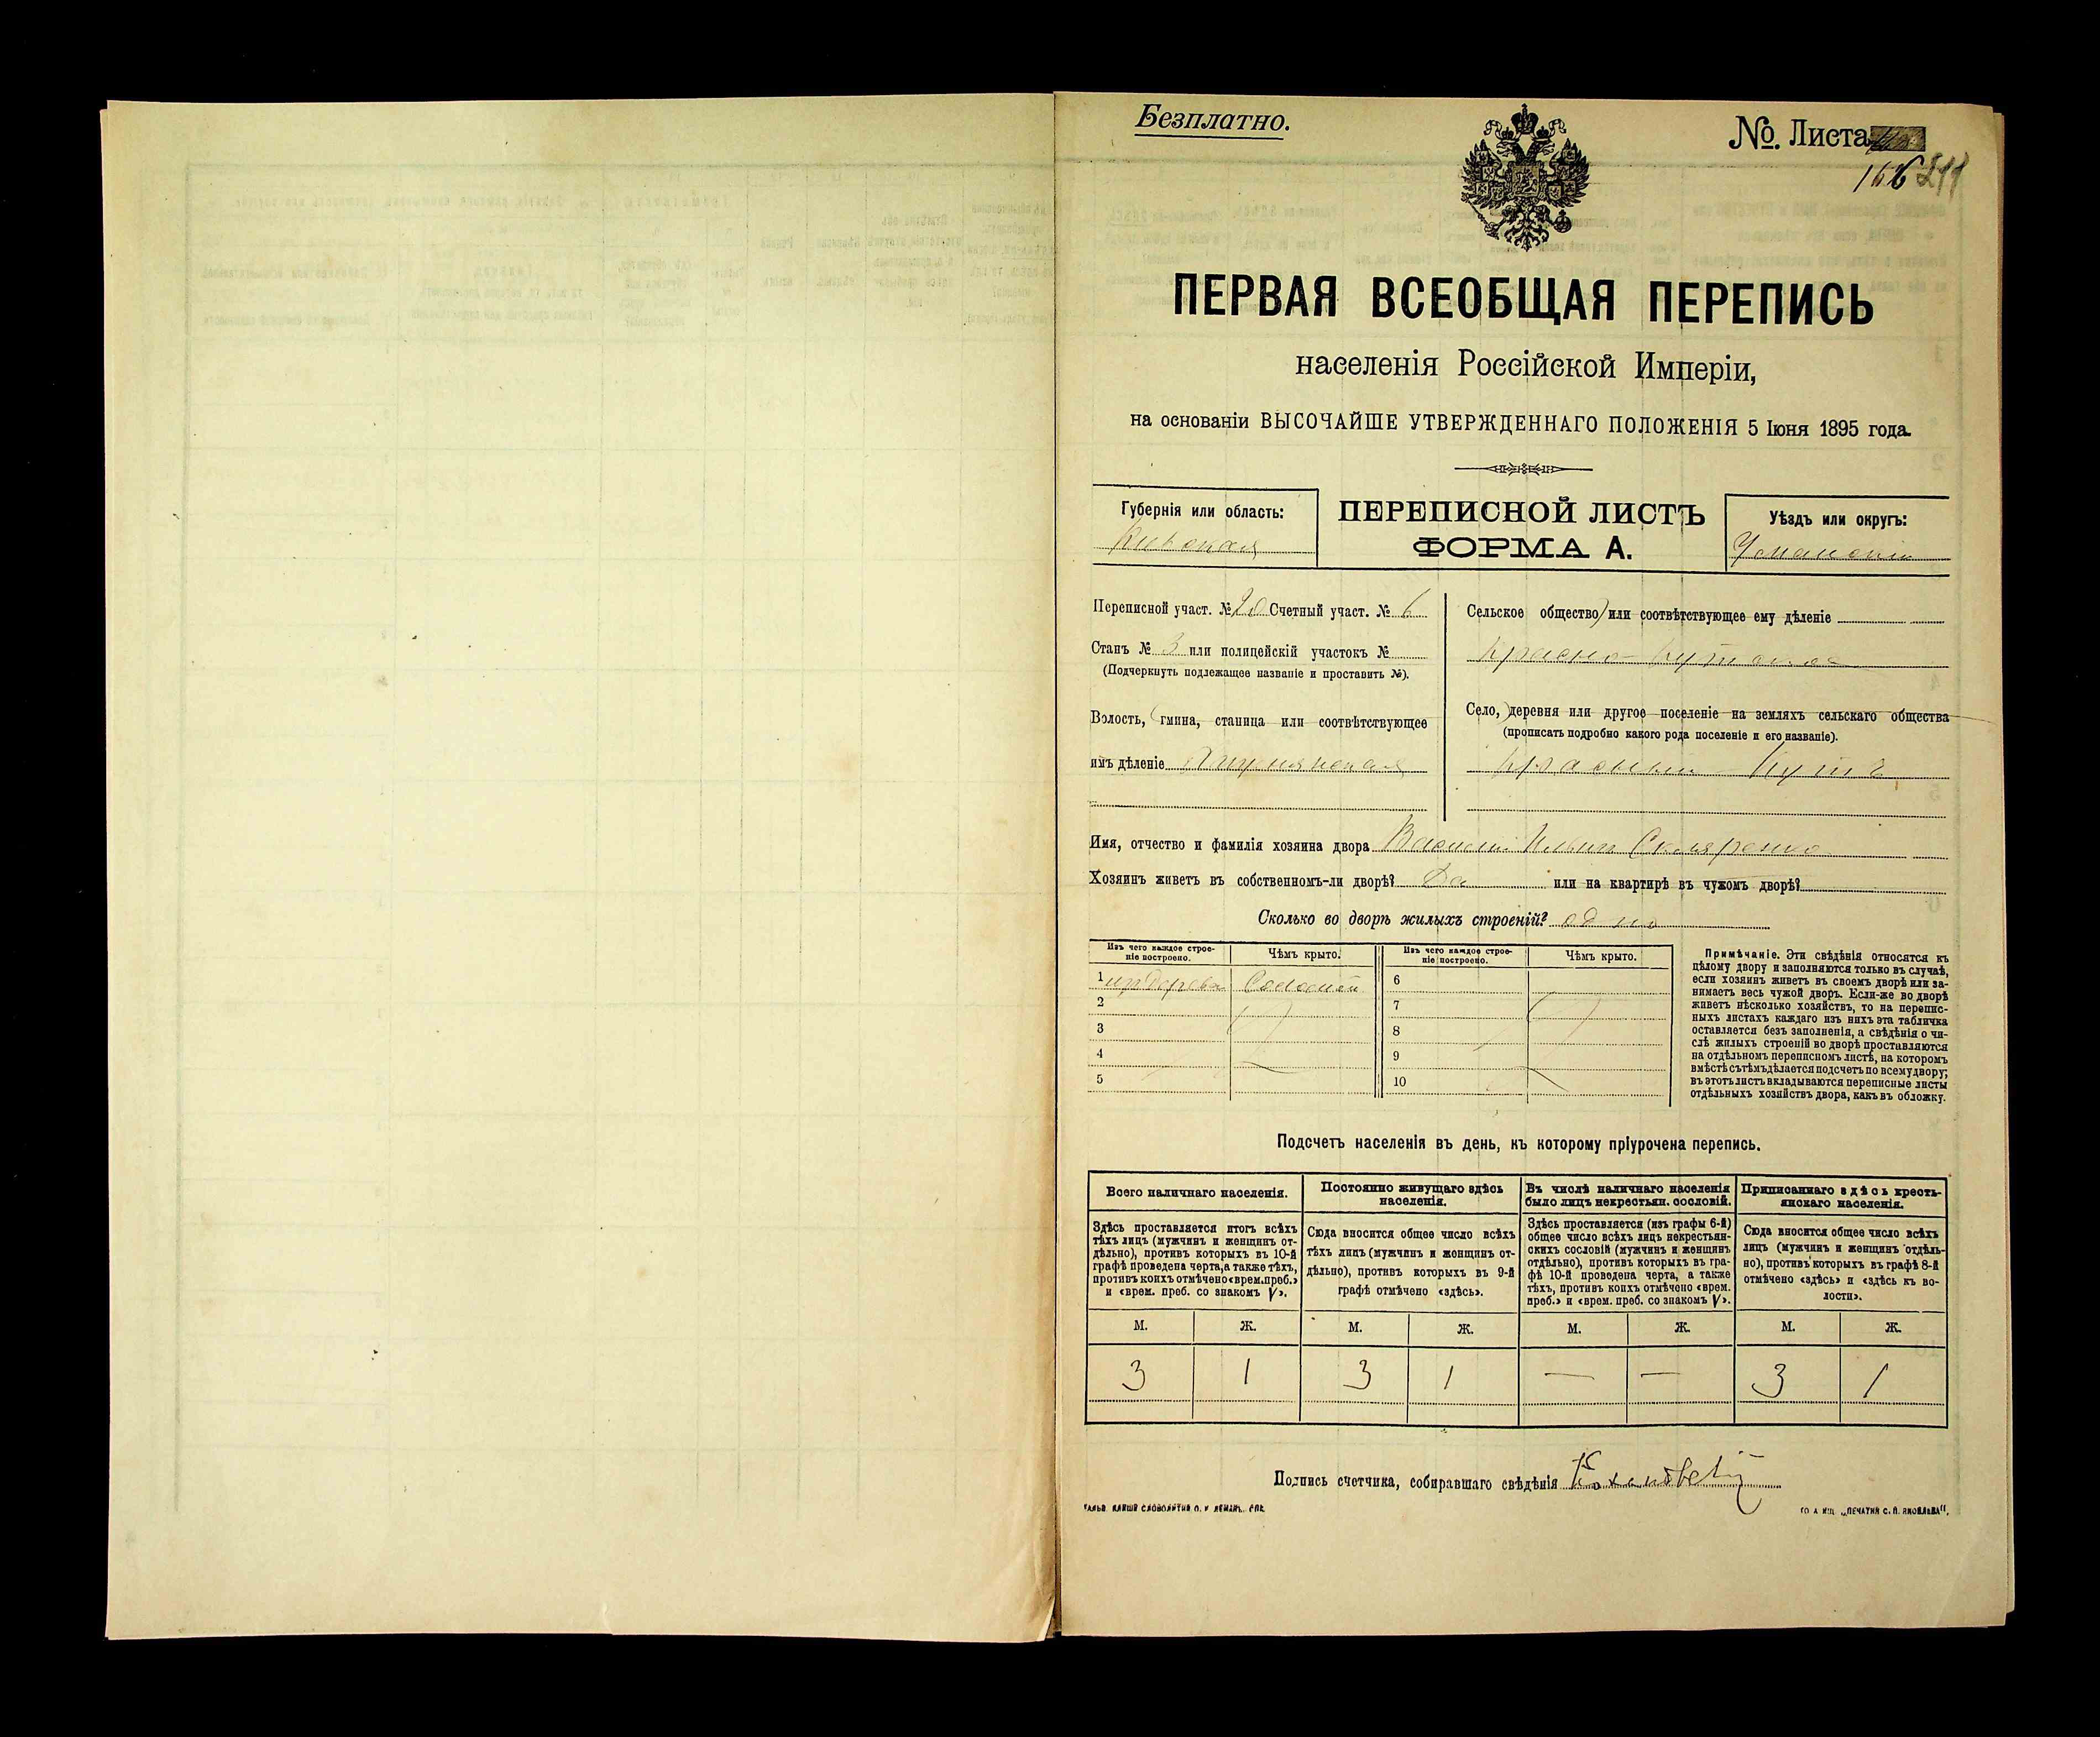 Безплатно.
№. Листа
166 211
ПЕРВАЯ ВСЕОБЩАЯ ПЕРЕПИСЬ
населенія Россійской Имперіи,
на основаніи ВЫСОЧАЙШЕ УТВЕРЖДЕННАГО ПОЛОЖЕНІЯ 5 Іюня 1895 года.
Губернія или область:
Кіевская
ПЕРЕПИСНОЙ ЛИСТЪ
ФОРМА А.
Уѣздъ или округъ:
Уманскій
Переписной участ. № 20 Счетный участ. № 6
Станъ № 3 или полицейскій участокъ №
(Подчеркнуть подлежащее названіе и проставить №).
Волость, гмина, станица или соотвѣтствующее
имъ дѣленіе
Сельское общество или соотвѣтствующее ему дѣленіе
Красно-Кутское
Село, деревня или другое поселеніе на земляхъ сельскаго общества
(прописать подробно какого рода поселеніе и его названіе).
Красный Кутъ
Имя, отчество и фамилія хозяина двора Василій Ильинъ Скляренко
Хозяинъ живетъ въ собственномъ-ли дворѣ? Да или на квартирѣ въ чужомъ дворѣ?
Сколько во дворѣ жилыхъ строеній? одно
Изъ чего каждое строе-
ніе построено.
Чѣмъ крыто.
Изъ чего каждое строе-
ніе построено.
Чѣмъ крыто.
1 изъ дерева Соломой 6
2 7
3 8
4 9
5 10
Примѣчаніе. Эти свѣдѣнія относятся къ
цѣлому двору и заполняются только въ случаѣ,
если хозяинъ живетъ въ своемъ дворѣ или за-
нимаетъ весь чужой дворъ. Если-же во дворѣ
живетъ нѣсколько хозяйствъ, то на перепис-
ныхъ листахъ каждаго изъ нихъ эта табличка
оставляется безъ заполненія, а свѣдѣнія о чи-
слѣ жилыхъ строеній во дворѣ проставляются
на отдѣльномъ переписномъ листѣ, на которомъ
вмѣстѣ съ тѣмъ дѣлается подсчетъ по всему двору;
въ этотъ листъ вкладываются переписные листы
отдѣльныхъ хозяйствъ двора, какъ въ обложку.
Подсчетъ населенія въ день, къ которому пріурочена перепись.
Всего наличнаго населенія.
Здѣсь проставляется итогъ всѣхъ
тѣхъ лицъ (мужчинъ и женщинъ от-
дѣльно), противъ которыхъ въ 10-й
графѣ проведена черта, а также тѣхъ,
противъ коихъ отмѣчено «врем. преб.»
и «врем. преб. со знакомъ V».
Постоянно живущаго здѣсь
населенія.
Сюда вносится общее число всѣхъ
тѣхъ лицъ (мужчинъ и женщинъ от-
дѣльно), противъ которыхъ въ 9-й
графѣ отмѣчено «здѣсь».
Въ числѣ наличнаго населенія
было лицъ некрестьян. сословій.
Здѣсь проставляется (изъ графы 6-й)
общее число всѣхъ лицъ некрестьян-
скихъ сословій (мужчинъ и женщинъ
отдѣльно), противъ которыхъ въ гра-
фѣ 10-й проведена черта, а также
тѣхъ, противъ коихъ отмѣчено «врем.
преб.» и «врем. преб. со знакомъ V».
Приписаннаго здѣсь кресть-
янскаго населенія.
Сюда вносится общее число всѣхъ
лицъ (мужчинъ и женщинъ отдѣль-
но), противъ которыхъ въ графѣ 8-й
отмѣчено «здѣсь» и «здѣсь къ во-
лости».
М. Ж. М. Ж. М. Ж. М. Ж.
3 1 3 1 — — 3 1
Подпись счетчика, собиравшаго свѣдѣнія